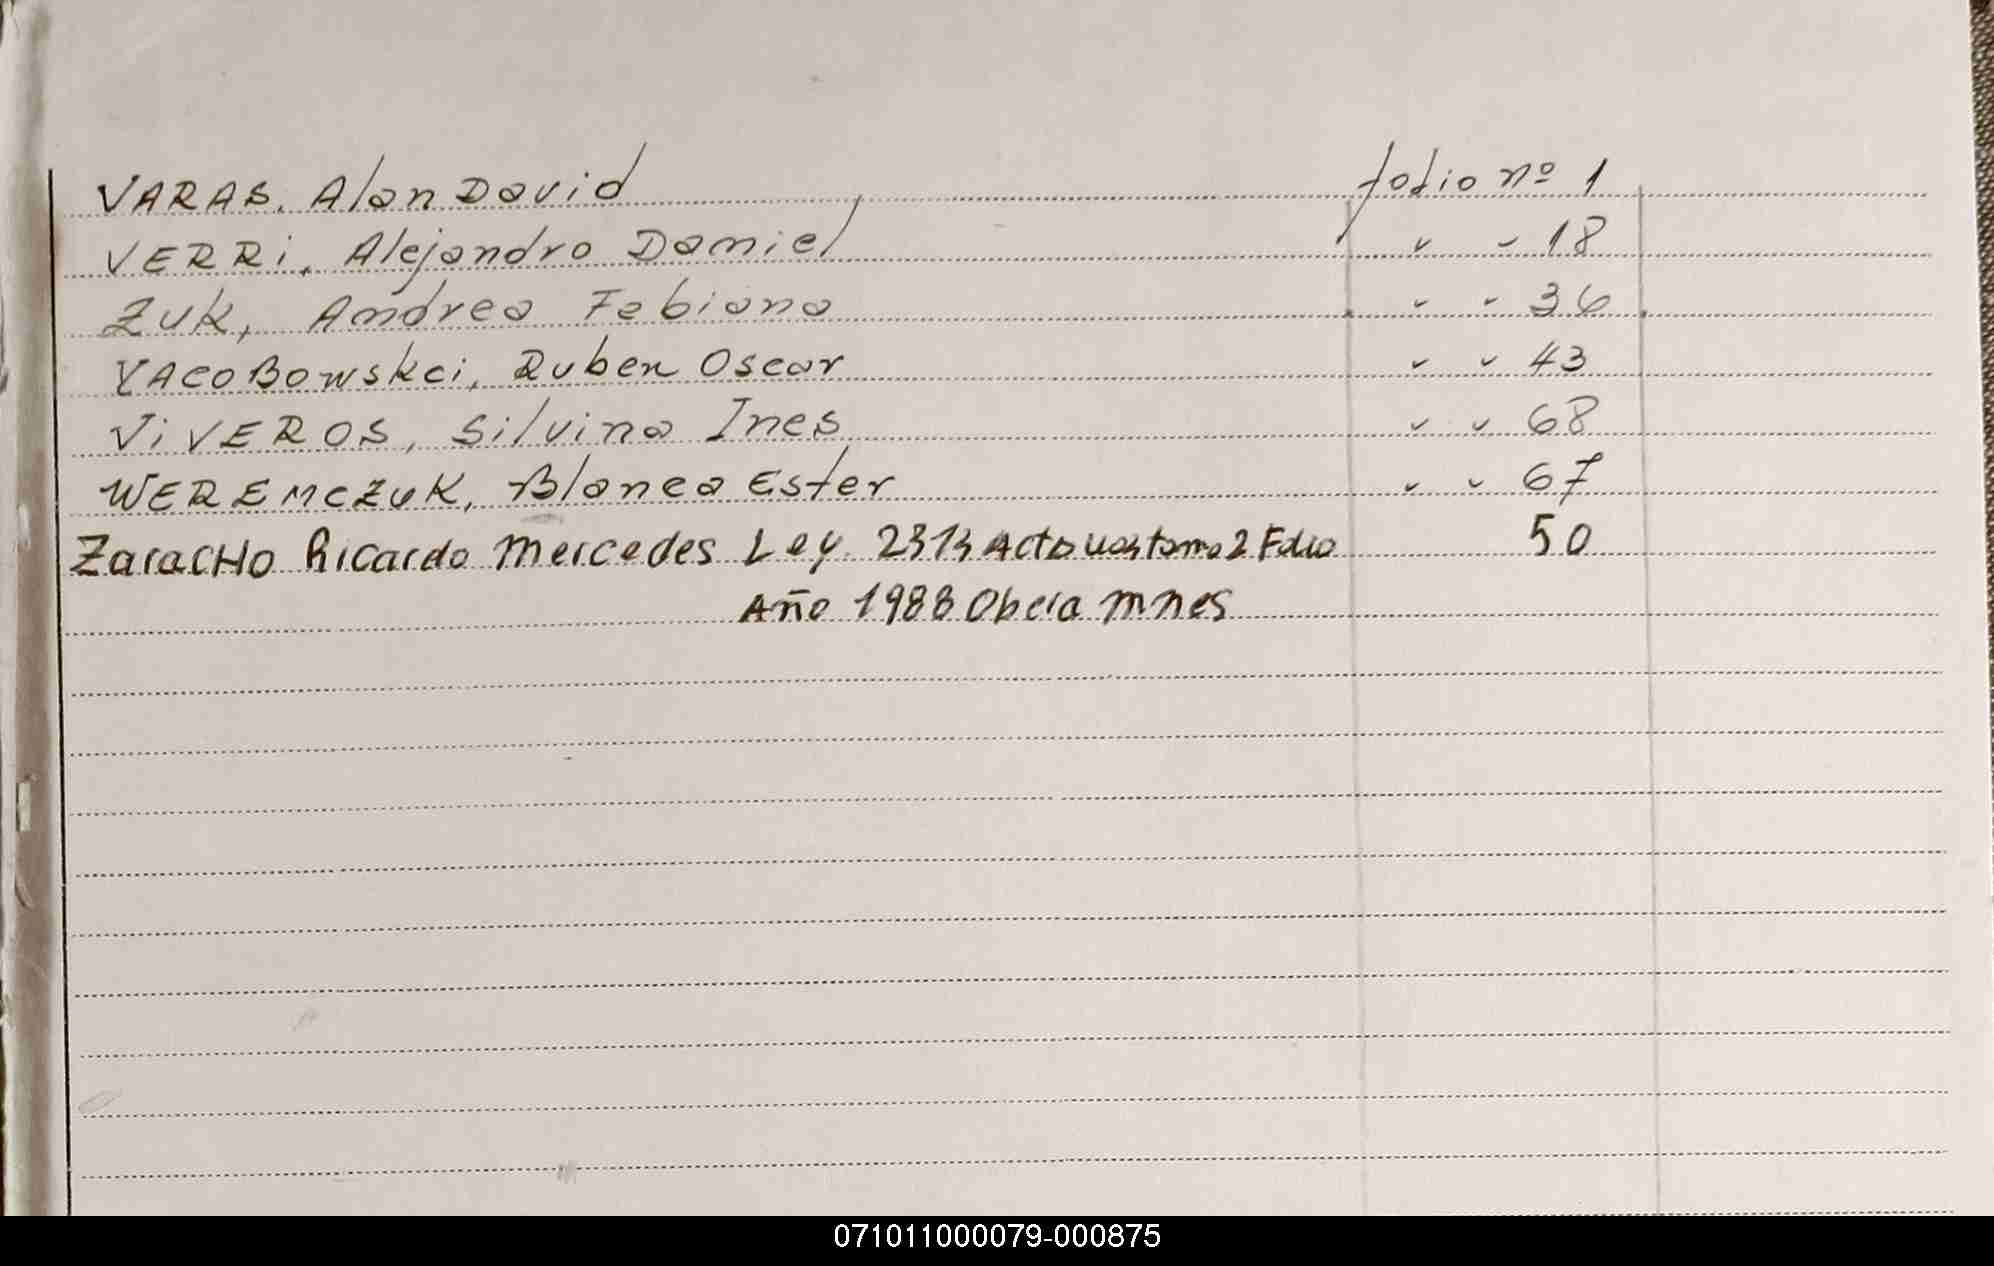 VARAS, Alan David folio nº 1
VERRi, Alejandro Daniel " " 18
ZUK, Andrea Fabiana " " 36
YACOBOWSKci, Ruben Oscar " " 43
ViVEROS, Silvina Ines " " 68
WEREMCZUK, Blanca Ester " " 67
ZaraCHo Ricardo Mercedes Ley 2313 Acto tomo 2 Folio 50
Año 1988 Obera Mnes
071011000079-000875